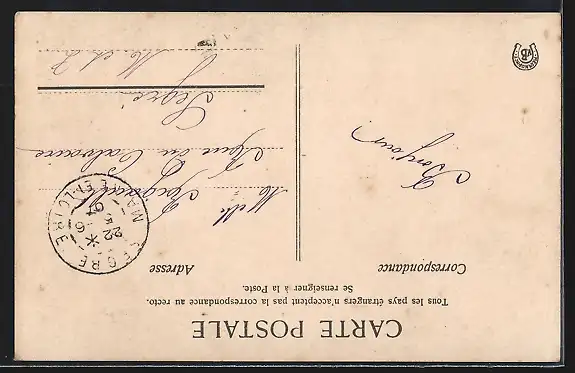 CARTE POSTALE
Tous les pays étrangers n'acceptent pas la correspondance au recto.
Se renseigner à la Poste.
Correspondance
Adresse
Bonjour
M elle
Rue du Calvaire
Segré
M et L
SEGRÉ
MAINE-ET-LOIRE
22